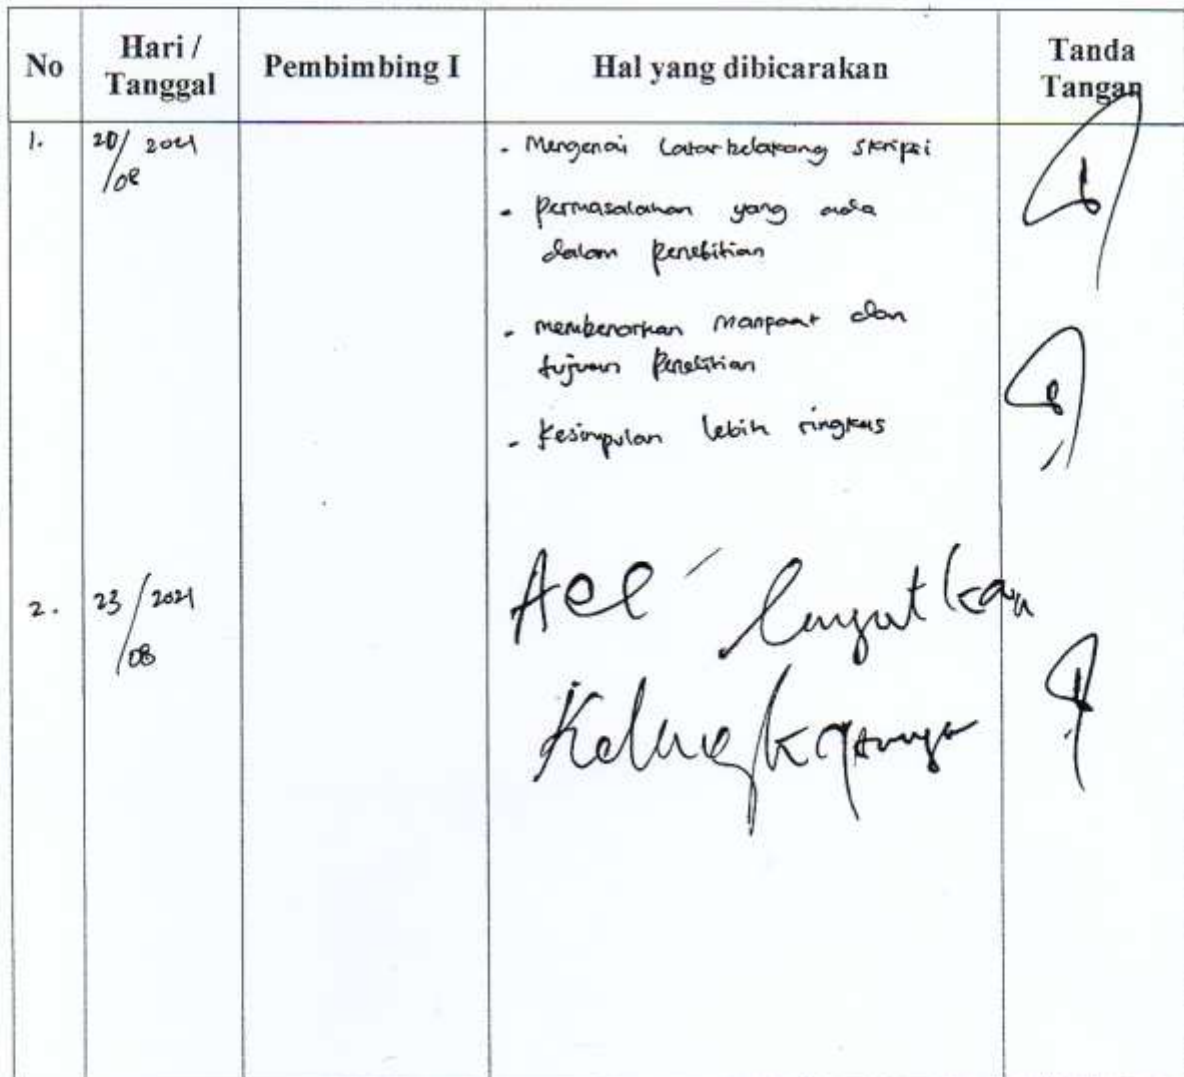 No
Hari /
Tanggal
Pembimbing I
Hal yang dibicarakan
Tanda
Tangan
1.
20/ 2021
/08
- Mengenai Latar belakang skripsi
- Permasalahan yang ada
dalam Penelitian
- membenarkan manpaat dan
tujuan Penelitian
- Kesimpulan lebih ringkas
2.
23/2021
/08
Acc lanjutkan